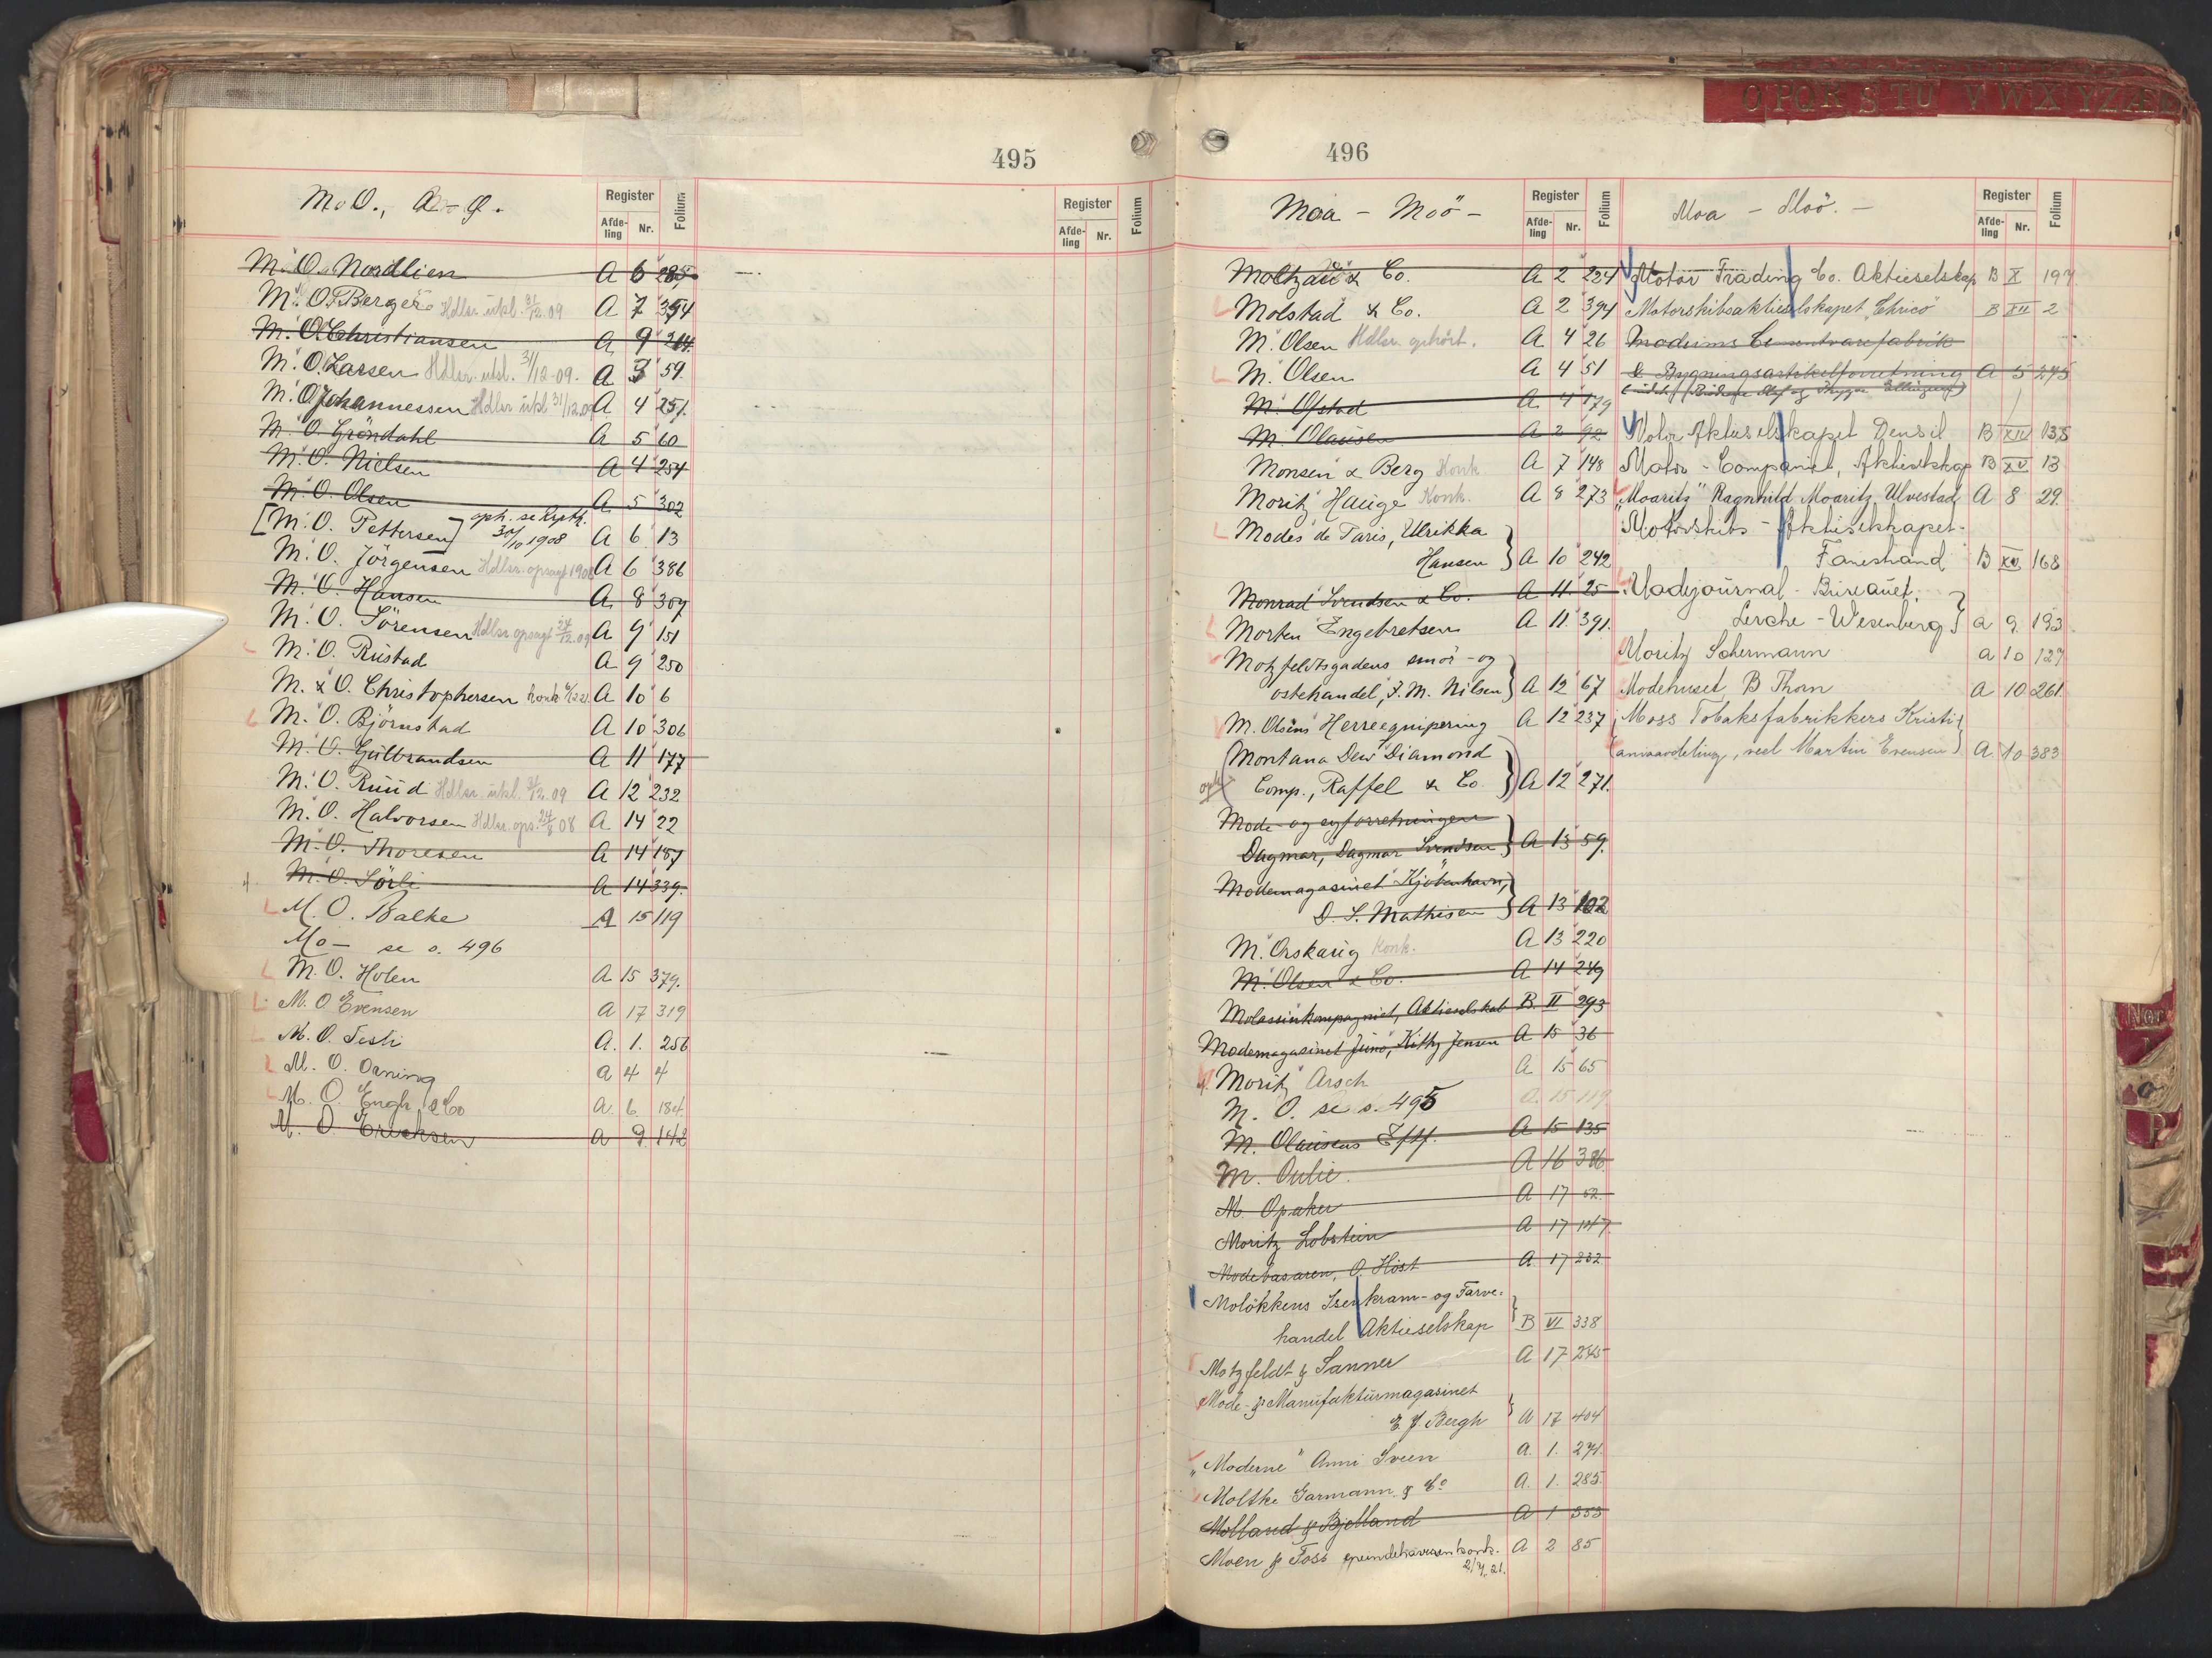 495
M. O., A - Ø.
Register
Afde-ling Nr. Folium
M. O. Nordlien A 6 285
M. O. Berger Hdlsr. ukl. 31/12.09 A 7 354
M. O. Christiansen A 9 214
M. O. Larsen Hdlsr. ukl. 31/12-09. A 3 59
M. O. Johannessen Hdlsr ukl 31/12.09 A 4 251
M. O. Gröndahl A 5 60
M. O. Nielsen A 4 254
M. O. Olsen A 5 302
[M. O. Pettersen] oph. se 30/10 1908 A 6 13
M. O. Jörgensen Hdlsr. opsagt 1908 A 6 386
M. O. Hansen A 8 307
M. O. Sörensen Hdlsr opsagt 24/12.09 A 9 151
M. O. Rustad A 9 250
M. & O. Christophersen konk A 10 6
M. O. Björnstad A 10 306
M. O. Gulbrandsen A 11 177
M. O. Ruud Hdlsr. ukl. 31/12.09 A 12 232
M. O. Halvorsen Hdlsr. ops. 24/8 08 A 14 22
M. O. Thoresen A 14 187
M. O. Sörli A 14 339.
M. O. Balke A 15 119
Mo- se s. 496
M. O. Holen A 15 379.
M. O. Evensen A 17 319
M. O. A. 1. 256
M. O. Orning a 4 4
M. O. Engh & Co A. 6 184
M. O. Ericksen a 9 142
Register
Afde-ling Nr. Folium
496
Moa - Moö -
Register
Afde-ling Nr. Folium
Moltzau & Co. A 2 224
Molstad & Co. A 2 394
M. Olsen Hdlsr. ophört. A 4 26
M. Olsen A 4 51
M. Ofstad A 4 179
M. Olausen A 2 92
Monsen & Berg Konk A 7 148
Moritz Hauge Konk. A 8 273
Modes de Paris, Ulrikka
Hansen A 10 242
Monrad Svendsen & Co. A 11 25
Morten Engebretsen A 11 391.
Motzfeldtsgadens smör- og
ostehandel, J. M. Nilsen A 12 67
M. Olsens Herreequipering A 12 237
(Montana Dew Diamond
Comp., Raffel & Co.) A 12 271.
Mode- og syforretningen
Dagmar, Dagmar Svendsen A 13 59.
Modemagasinet "Kjöbenhavn",
D. S. Mathisen A 13 102
M. Orskarig Konk. A 13 220
M. Olsen & Co. A 14 249
Molassinkompagniet, Aktieselskab B. II 293
Modemagasinet Juno, Kitty Jensen A 15 36
Moritz Arsch A 15 65
M. O. se s. 495 A. 15 119
M. Olausens Eftf. A 15 135
M. Oulie A 16 386
M. Opaker A 17 52.
Moritz Lobstein A 17 147
Modebasaren, O. Höst A. 17 232
Molökkens Isenkram- og Farve-
handel Aktieselskap B VI 338
Motzfeldt & Sanner A 17 245
Mode- & Manufakturmagasinet
E. J. Bergh A 17 404
"Moderne" Anni Sveen A. 1. 271.
Moltke Garmann & Co A. 1. 285.
Molland & Bjelland A 1 353
Moen & Foss konk. 2/4.21. A 2 85
Moa - Moö. -
Register
Afde-ling Nr. Folium
Motor Trading Co. Aktieselskap B X 197
Motorskibsaktieselskapet "Chrico" B XII 2
Modums Cementvarefabrik
& Bygningsartikelforretning A 5 245
Motor Aktieselskapet Densil B XIV 138
Motor-Compagniet, Aktieselskap B XV 13
"Moaritz" Ragnhild Moaritz Ulvestad A 8 29.
Motorskibs-Aktieselskapet
Fanestrand B XV. 168
Modejournal-Bureauet,
Lerche-Wesenberg a 9. 193
Moritz Schermann a 10 127
Modehuset B Thorn a 10 261
Moss Tobaksfabrikkers Kristi-
aniaavdeling, ved Martin Evensen A. 10 383
O P Q R S T U V W X Y Z Æ